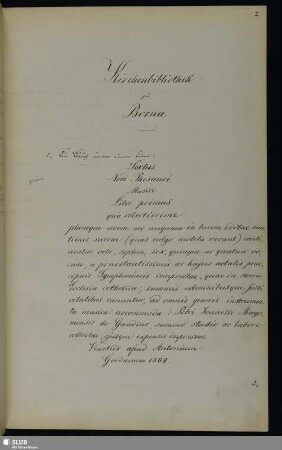 1
Kirchenbibliothek
zu
Borna.
1.
Sextus
Novi Thesauri
Musici
Liber primus
quo selectissime
planeque novae nec unquam in lucem editae can-
tiones sacrae (quas vulgo moteta vocant) conti-
nentur octo, septem, sex, quinque ac quatuor vo-
cum, a praestantissimis ac hujus aetatis prae-
cipuis Symphoniacis compositae, quae in sacra
Ecclesia catholica, summis solemnibusque festi-
vitatibus canuntur, ad omnis generis instrumen-
ta musica accommodatae: Petri Joannelli Bergo-
mensis de Gandino summo studio ac labore
collectae, ejusque expensis impressae.
Venetiis apud Antonium
Gardanum 1568.
2,
SLUB